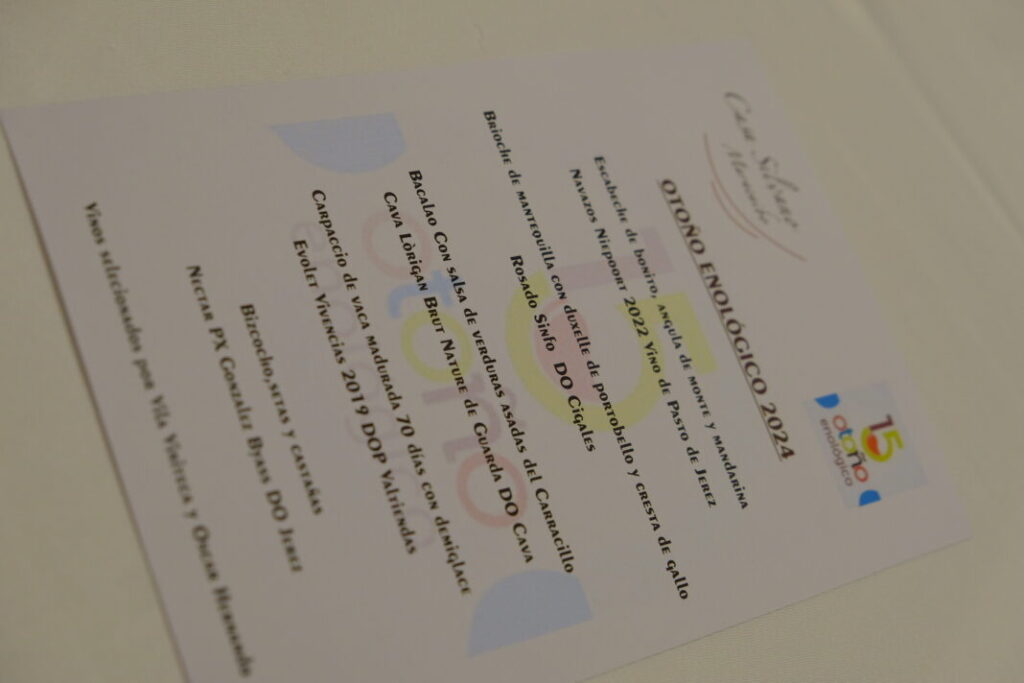 Casa Silvano
OTOÑO ENOLÓGICO 2024
15
otoño
enológico
Escabeche de bonito, angula de monte y mandarina
Navazos Niepoort 2022 Vino de Pasto de Jerez
Brioche de mantequilla con duxelle de portobello y cresta de gallo
Rosado Sinfo DO Cigales
Bacalao Con salsa de verduras asadas del Carracillo
Cava Lòrigan Brut Nature de Guarda DO Cava
Carpaccio de vaca madurada 70 días con demiglace
Evolet Vivencias 2019 DOP Valtiendas
Bizcocho,setas y castañas
Nectar PX Gonzalez Byass DO Jerez
Vinos selecionados por Vila Viniteca y Oscar Hernando
15
otoño
enológico